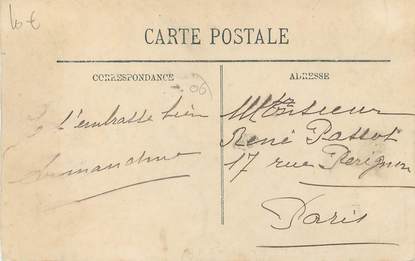 10 €
CARTE POSTALE
CORRESPONDANCE
ADRESSE
06
t'embrasse bien
Monsieur
René Passot
17 rue Perignon
Paris